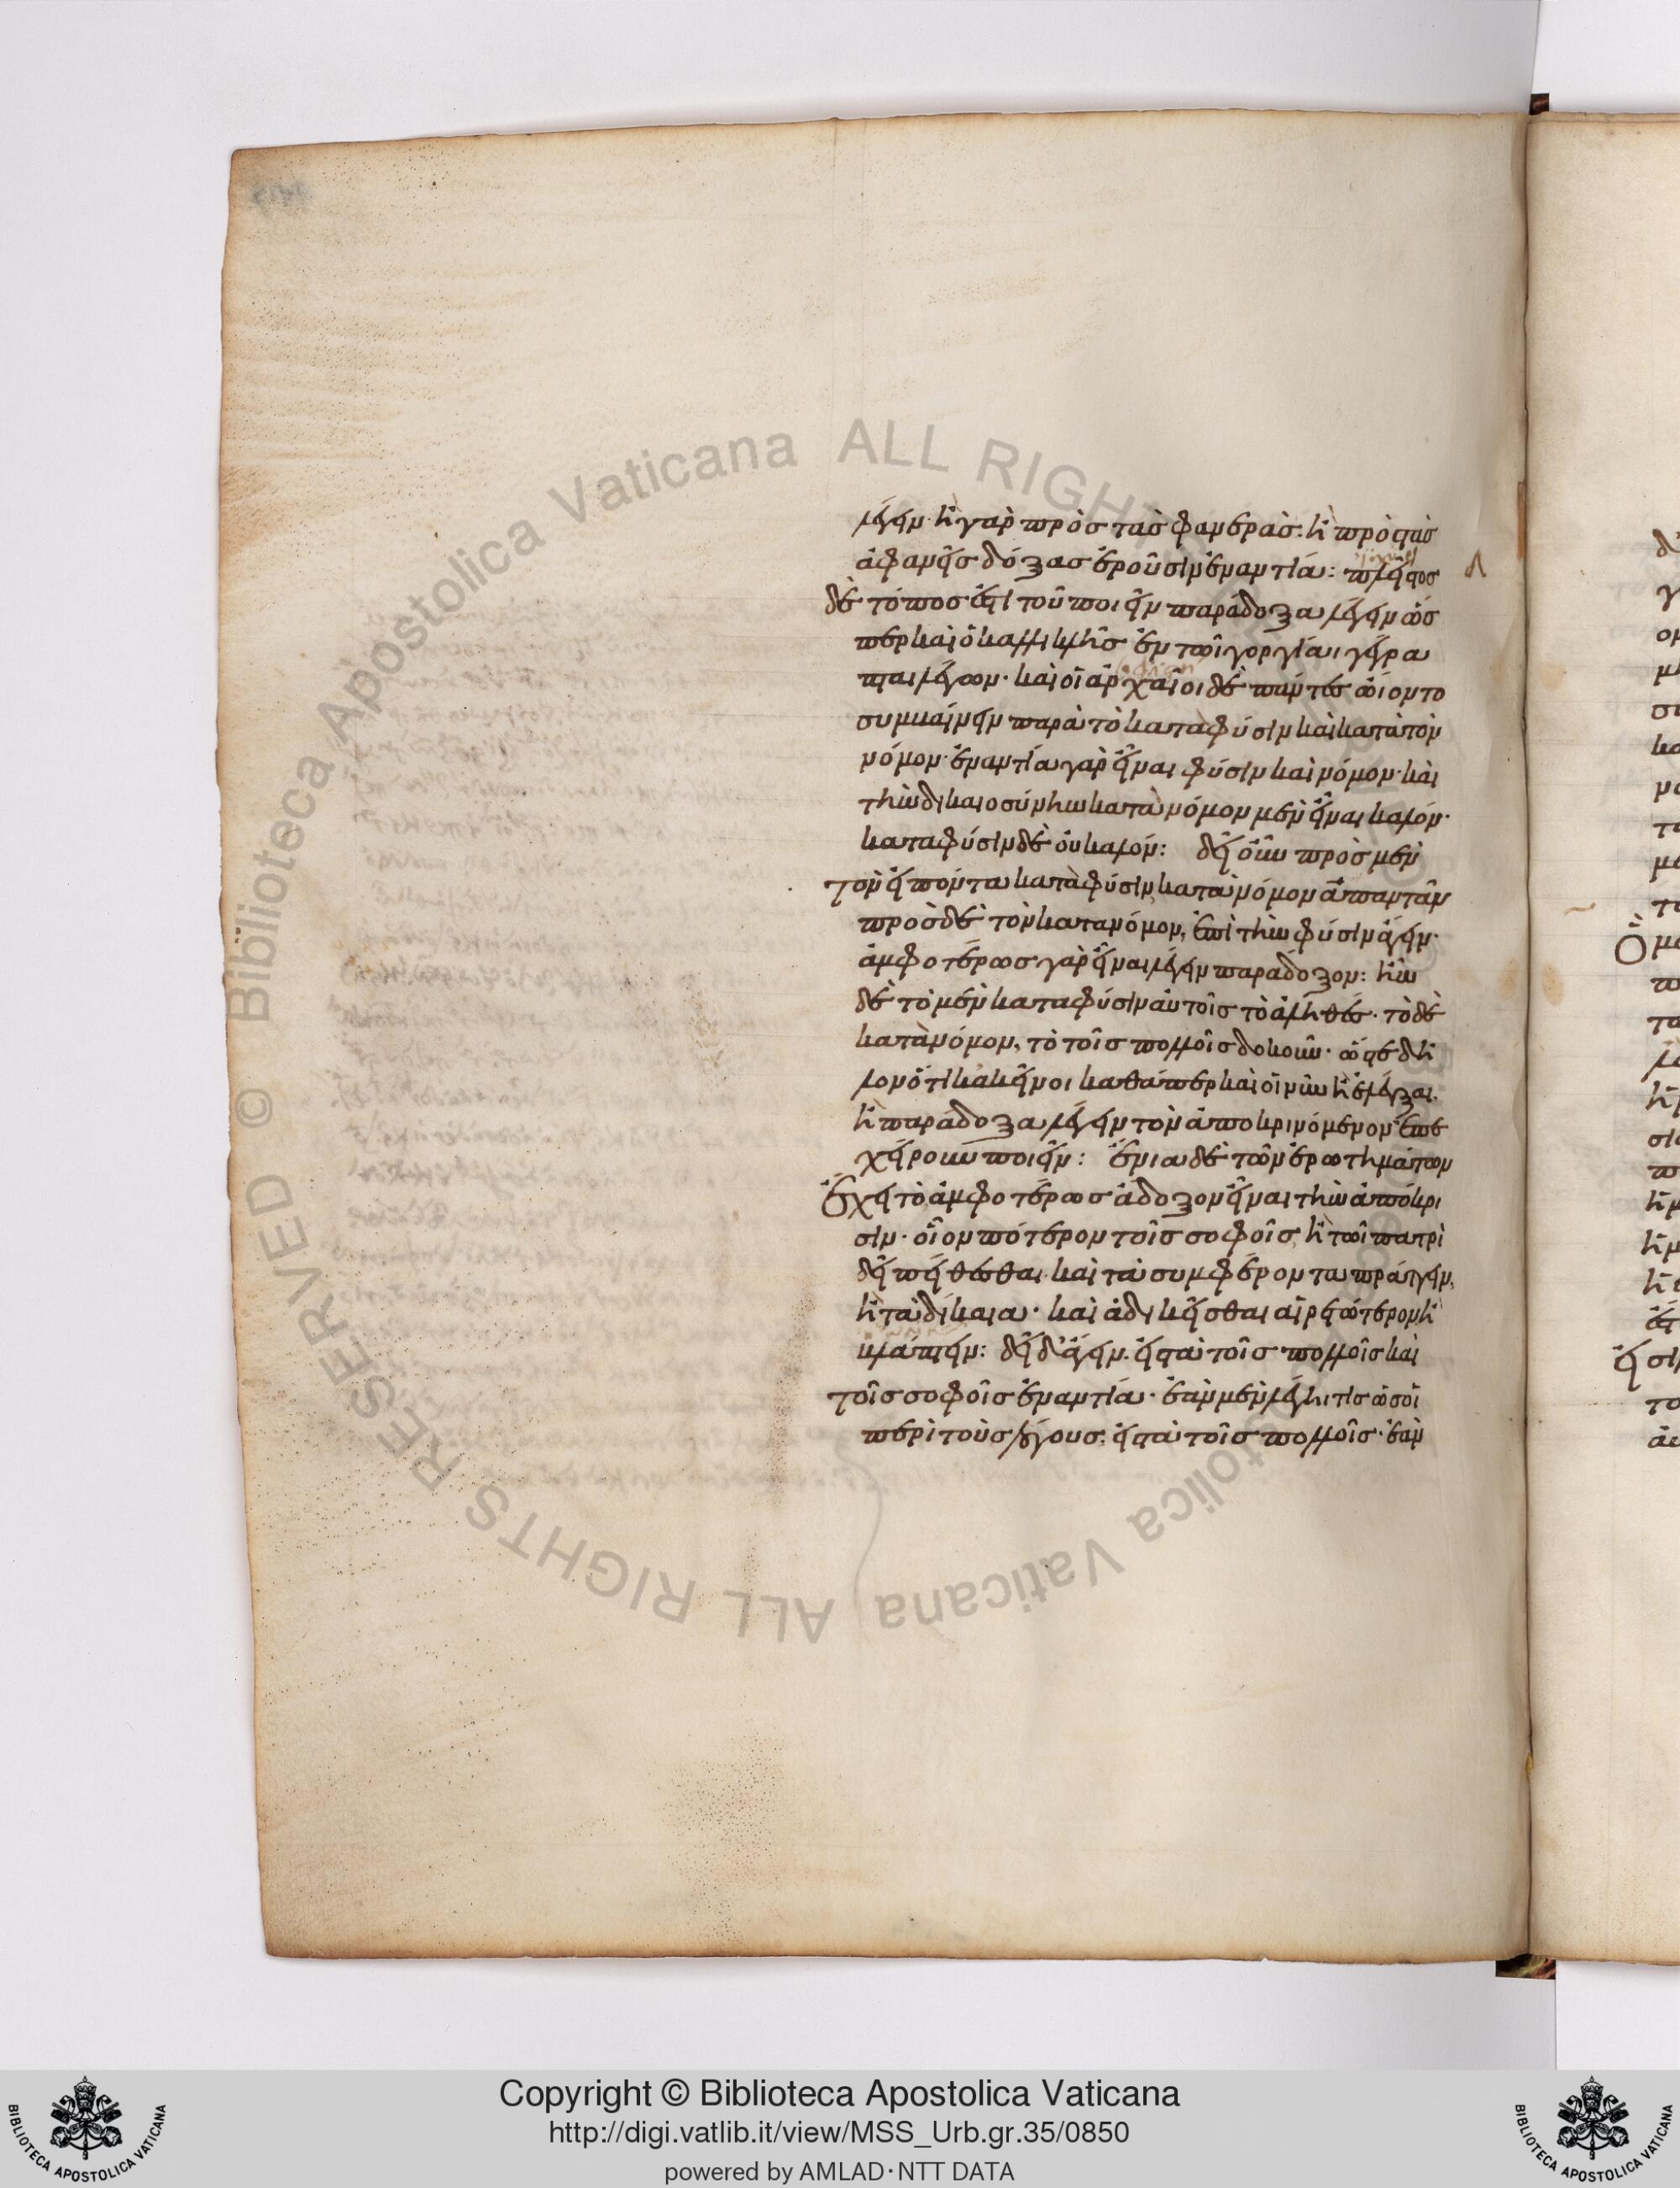 λέγειν· ἢ γὰρ πρὸς τὰς φανερὰς. ἢ πρὸς τὰς
ἀφανεῖς δόξας ἐροῦσιν ἐναντία: πλεῖστος
δὲ τόπος ἐστὶ τοῦ ποιεῖν παράδοξα λέγειν ὥς
περ καὶ ὁ καλλικλῆς ἐν τῶι γοργίαι γέγρα
πται λέγων· καὶ οἱ ἀρχαῖοι δὲ πάντες ὤιοντο
συμβαίνειν παρὰ τὸ κατὰ φύσιν καὶ κατὰ τὸν
νόμον· ἐναντία γὰρ εἶναι φύσιν καὶ νόμον· καὶ
τὴν δικαιοσύνην κατὰ νόμον μὲν εἶναι καλόν·
κατὰ φύσιν δὲ οὐ καλόν: δεῖ οὖν πρὸς μὲν
τὸν εἰπόντα κατὰ φύσιν, κατὰ νόμον ἀπαντᾶν
πρὸς δὲ τὸν κατὰ νόμον, ἐπὶ τὴν φύσιν ἄγειν·
ἀμφοτέρως γὰρ εἶναι λέγειν παράδοξον: ἦν
δὲ τὸ μὲν κατὰ φύσιν αὐτοῖς τὸ ἀληθές· τὸ δὲ
κατὰ νόμον, τὸ τοῖς πολλοῖς δοκοῦν· ὥστε δῆ
λον ὅτι κἀκεῖνοι καθάπερ καὶ οἱ νῦν ἢ ἐλέγξαι.
ἢ παράδοξα λέγειν τὸν ἀποκρινόμενον ἐπε
χείρουν ποιεῖν: ἔνια δὲ τῶν ἐρωτημάτων
ἔχει τὸ ἀμφοτέρως ἄδοξον εἶναι τὴν ἀπόκρι
σιν· οἷον πότερον τοῖς σοφοῖς, ἢ τῶι πατρὶ
δεῖ πείθεσθαι. καὶ τὰ συμφέροντα πράττειν,
ἢ τὰ δίκαια· καὶ ἀδικεῖσθαι αἱρετώτερον ἢ
βλάπτειν: δεῖ δ' ἄγειν. εἰς τὰ τοῖς πολλοῖς καὶ
τοῖς σοφοῖς ἐναντία· ἐὰν μὲν λέγηι τις ὡς οἱ
περὶ τοὺς λόγους. εἰς τὰ τοῖς πολλοῖς· ἐὰν
Copyright © Biblioteca Apostolica Vaticana
http://digi.vatlib.it/view/MSS_Urb.gr.35/0850
powered by AMLAD·NTT DATA
BIBLIOTECA APOSTOLICA VATICANA
BIBLIOTECA APOSTOLICA VATICANA